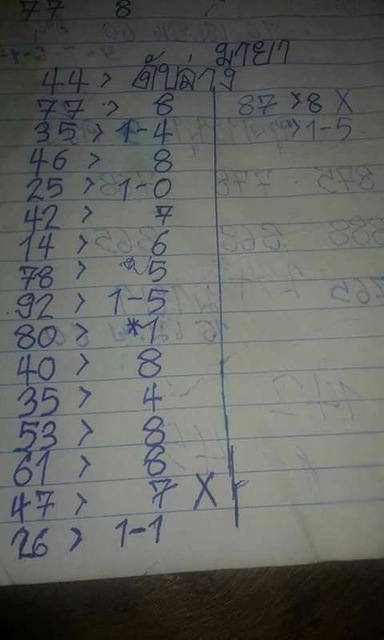 77 8
มายา
44 > ดับล่าง
77 > 8 87 > 8 X
35 > 1-4 > 1-5
46 > 8
25 > 1-0
42 > 7
14 > 6
78 > 5
92 > 1-5
80 > *1
40 > 8
35 > 4
53 > 8
61 > 6
47 > 7 X
26 > 1-1